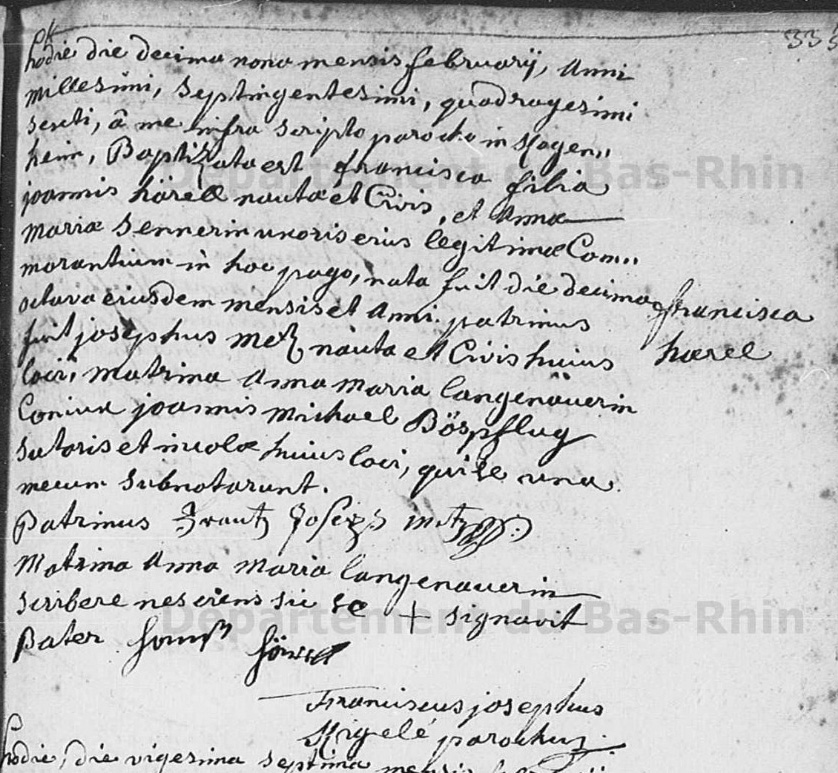 335
pk
hodie die decima nona mensis februarij, Anni
millesimi, Septingentesimi, quadragesimi
sexti, â me infra scripto parocho in Plagen,,
heim, Baptizata est francisca filia
joannis härell nautæ et Civis, et Annæ
Mariæ Sennerin uxoris eius legitimæ Com,,
morantium in hoc pago, nata fuit die decima
octava eiusdem mensis et Anni. patrinus
fuit josephus Metz nauta et Civis huius
loci, matrina Anna Maria langenäuerin
Coniux joannis Michael Böspflug
sutoris et incolæ huius loci, qui se una
mecum Subnotarunt.
francisca
härel
Patrinus Frantz Joseph Metz
Matrina Anna Maria langenauerin
scribere nesciens sic se + signavit
Pater härell
Franciscus josephus
Rigelé parochus.
hodie, die vigesima septima mensis
Département du Bas-Rhin
Département du Bas-Rhin